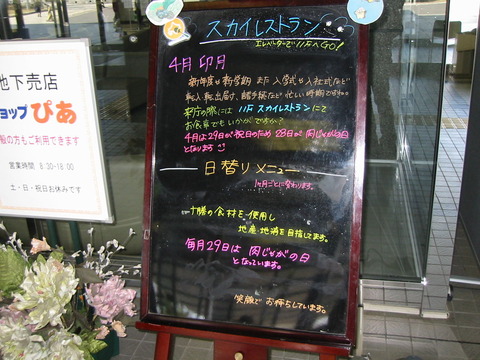 スカイレストラン
エレベーターで11FへGO!
4月 卯月
新年度や新学期 また 入学式や入社式など
転入転出届け、諸手続など 忙しい時期ですね。
来庁の際には 11F スカイレストランにて
お食事でもいかがですか?
4月は29日が祝日のため 28日が 肉じゃがの日
となります
日替りメニュー
1ヶ月ごとに変わります。
十勝の食材を使用し
地産・地消を目指してます。
毎月29日は 肉じゃがの日
となっています。
笑顔で お待ちしています。
地下売店
ョップ ぴあ
般の方もご利用できます
営業時間 8:30-18:00
土・日・祝日お休みです